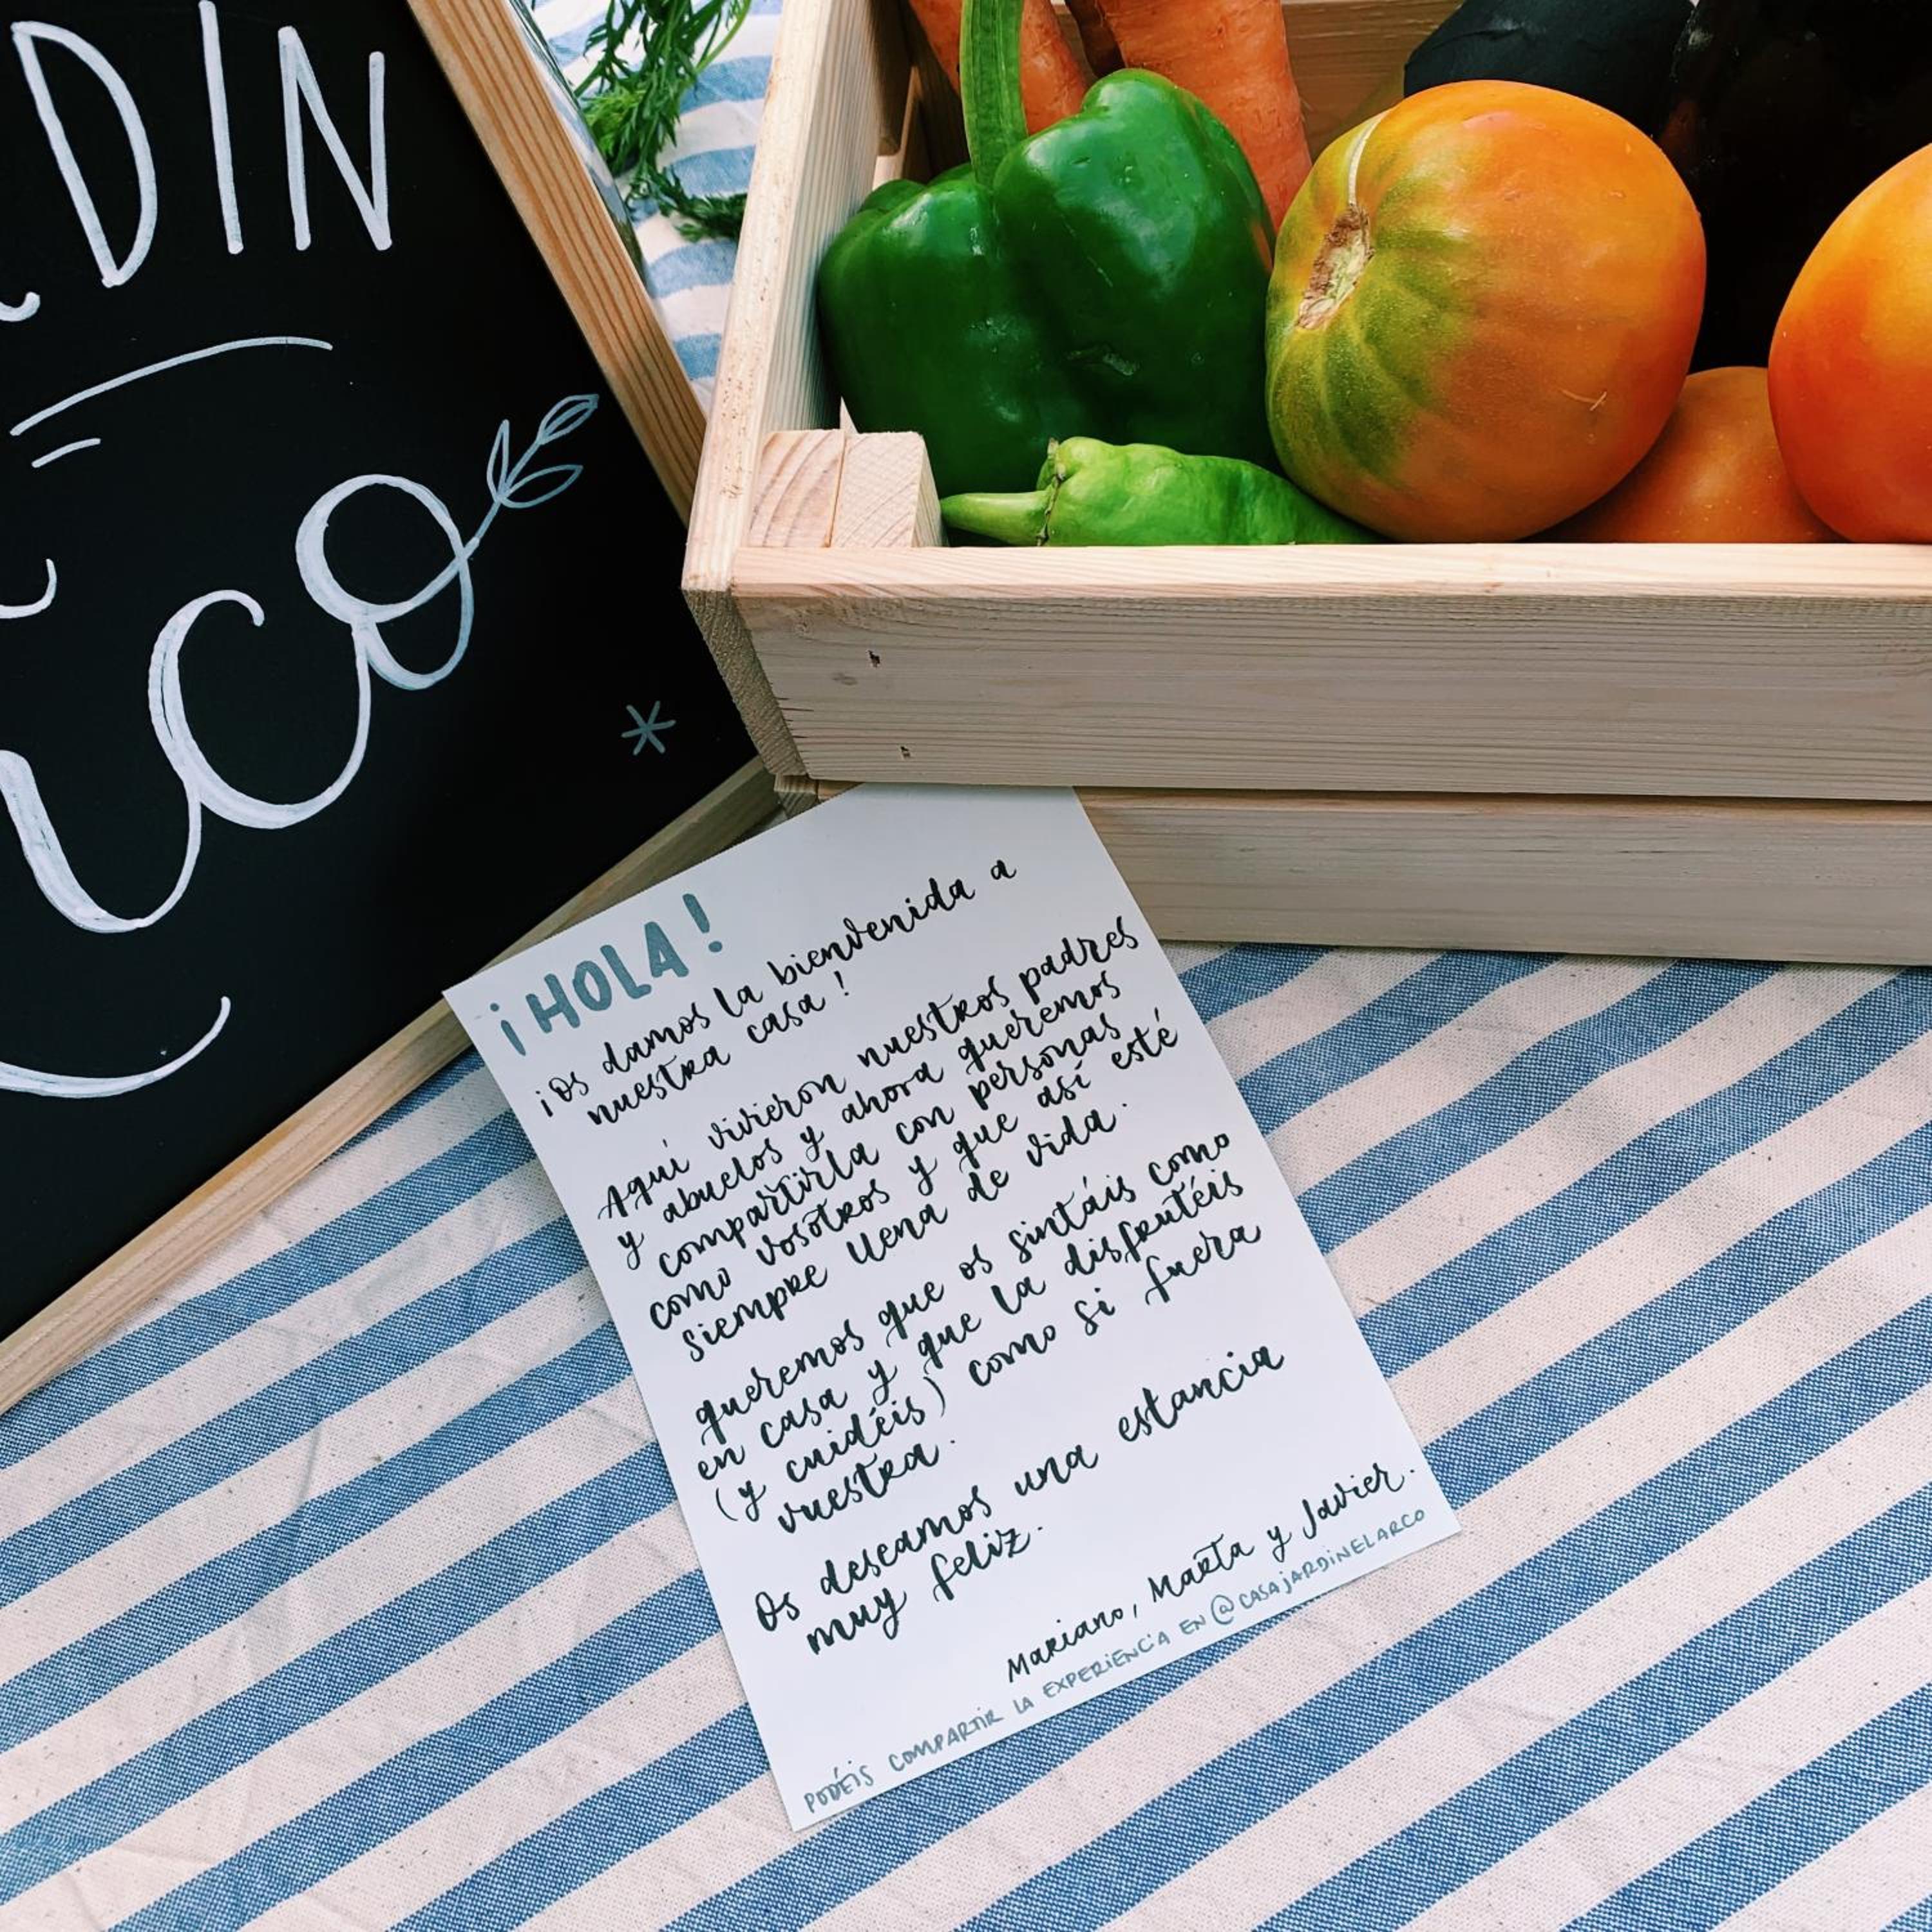 DIN
rco
¡HOLA!
¡Os damos la bienvenida a
nuestra casa!
Aquí vivieron nuestros padres
y abuelos y ahora queremos
compartirla con personas
como vosotros y que así esté
siempre llena de vida.
queremos que os sintáis como
en casa y que la disfrutéis
(y cuidéis) como si fuera
vuestra.
Os deseamos una estancia
muy feliz.
Mariano, Marta y Javier.
PODÉIS COMPARTIR LA EXPERIENCIA EN @CASAJARDINELARCO